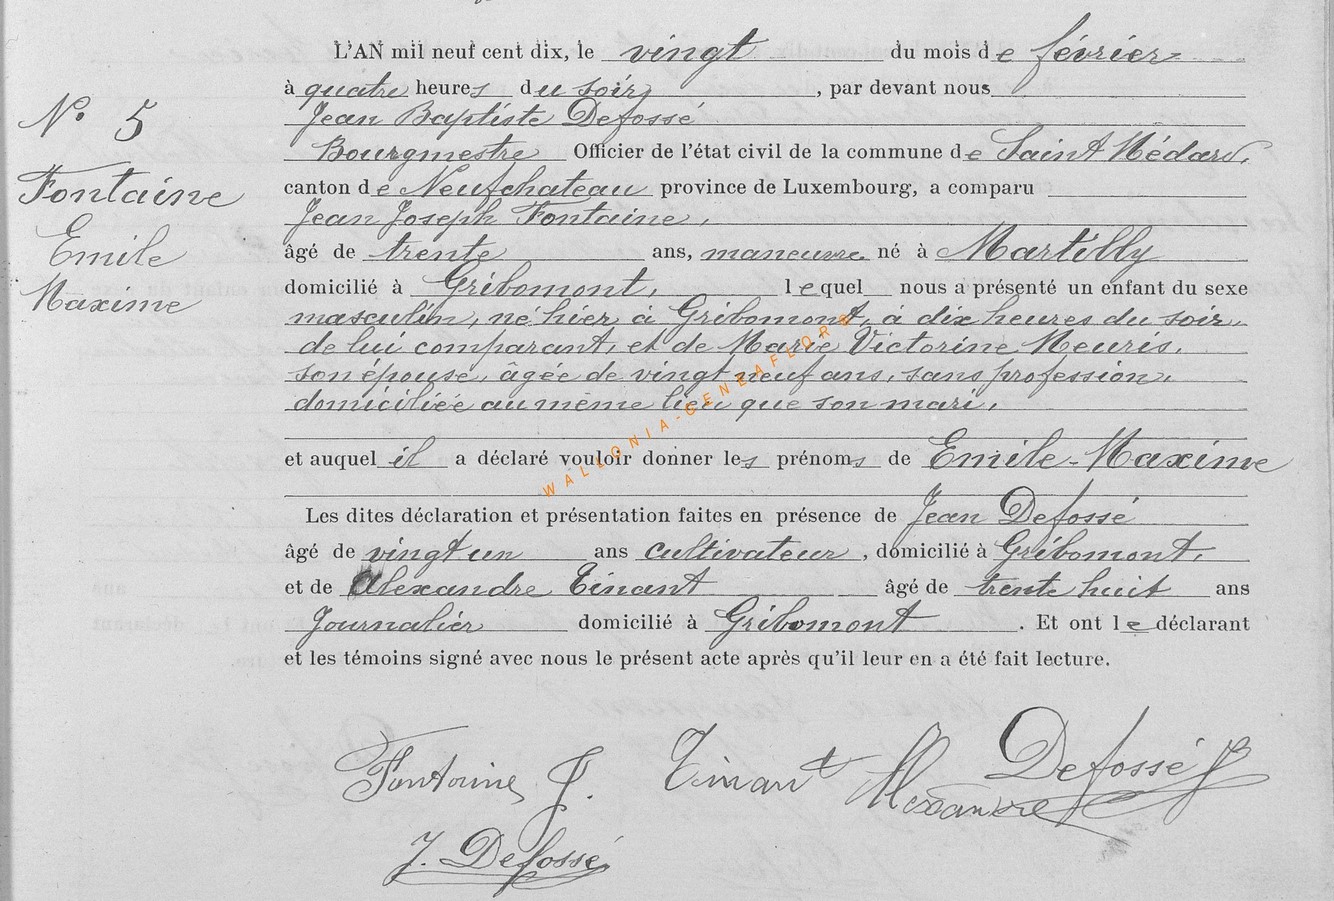 L'AN mil neuf cent dix, le vingt du mois de février
à quatre heures du soir, par devant nous
Jean Baptiste Defossé
Bourgmestre Officier de l'état civil de la commune de Saint Médard,
canton de Neufchateau province de Luxembourg, a comparu
Jean Joseph Fontaine,
âgé de trente ans, manœuvre né à Martilly
domicilié à Gribomont, lequel nous a présenté un enfant du sexe
masculin, né hier à Gribomont, à dix heures du soir,
de lui comparant, et de Marie Victorine Meuris,
son épouse, agée de vingt neuf ans, sans profession,
domiciliée au même lieu que son mari,
et auquel il a déclaré vouloir donner les prénoms de Emile-Maxime
Les dites déclaration et présentation faites en présence de Jean Defossé
âgé de vingt un ans cultivateur, domicilié à Gribomont,
et de Alexandre Tinant âgé de trente huit ans
Journalier domicilié à Gribomont. Et ont le déclarant
et les témoins signé avec nous le présent acte après qu'il leur en a été fait lecture.
N° 5
Fontaine
Emile
Maxime
WALLONIA-GENEAFLORE
Fontaine J. Tinant Alexandre Defossé J
J. Defossé